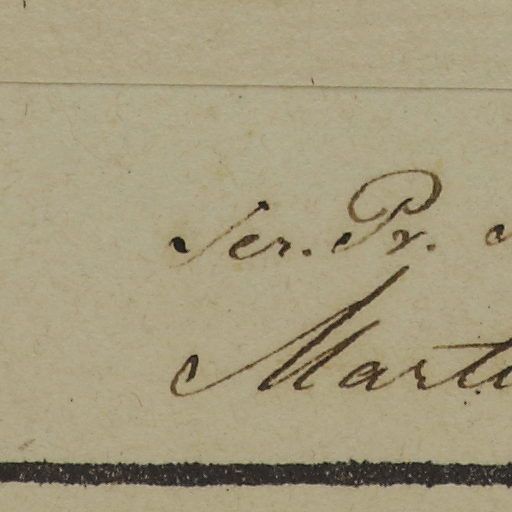 Ser. Pr.
Mart